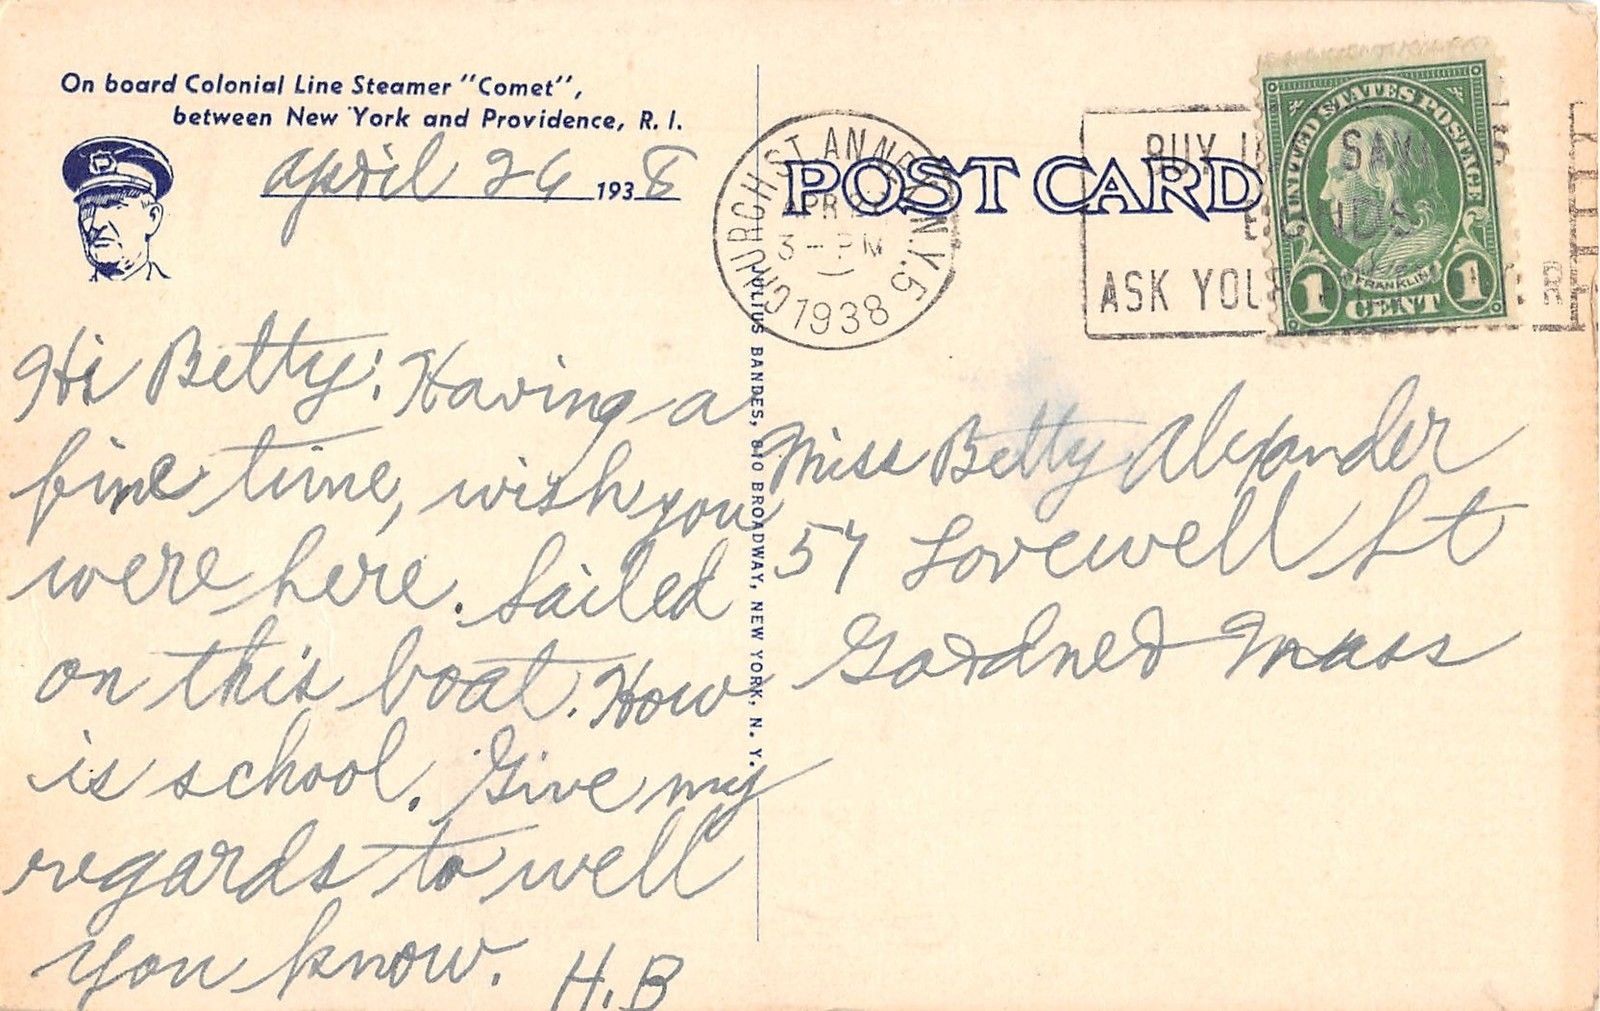 On board Colonial Line Steamer "Comet",
between New York and Providence, R. I.
April 26 1938
Hi Betty: Having a
fine time, wish you
were here. Sailed
on this boat. How
is school. Give my
regards to well
you know. H.B
JULIUS BANDES, 810 BROADWAY, NEW YORK, N. Y.
POST CARD
CHURCH ST ANNEX N.Y. 5
APR
3-PM
1938
BUY
ASK
UNITED STATES POSTAGE
FRANKLIN
1 CENT 1
Miss Betty Alexander
57 Lovewell St
Gardner Mass